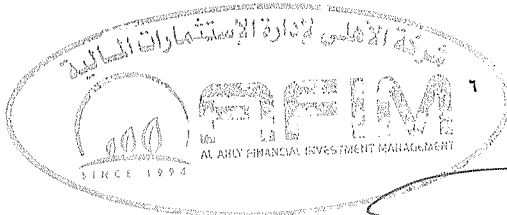 شركة الأهلى لإدارة الإستثمارات المالية
٦
AFIM
AL AHLY FINANCIAL INVESTMENT MANAGEMENT
SINCE 1994